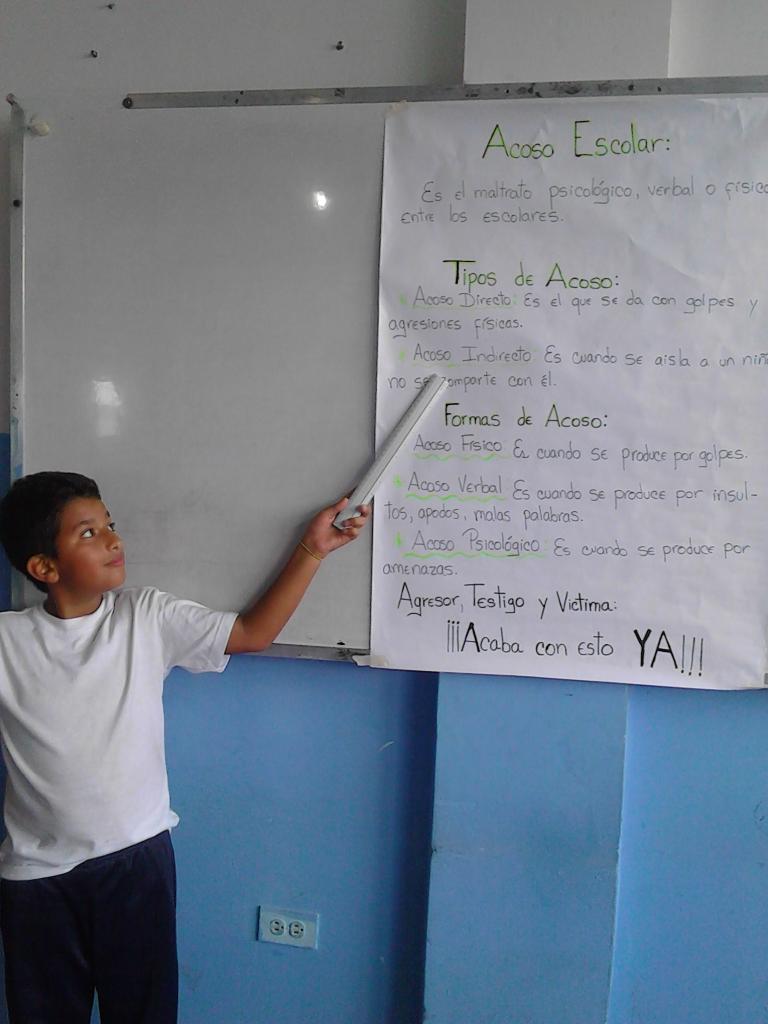 Acoso Escolar:
Es el maltrato psicológico, verbal o físico
entre los escolares.
Tipos de Acoso:
* Acoso Directo: Es el que se da con golpes y
agresiones físicas.
* Acoso Indirecto: Es cuando se aisla a un niñ
no se comparte con él.
Formas de Acoso:
Acoso Físico: Es cuando se produce por golpes.
* Acoso Verbal: Es cuando se produce por insul-
tos, apodos, malas palabras.
* Acoso Psicológico: Es cuando se produce por
amenazas.
Agresor, Testigo y Victima:
¡¡¡Acaba con esto YA!!!